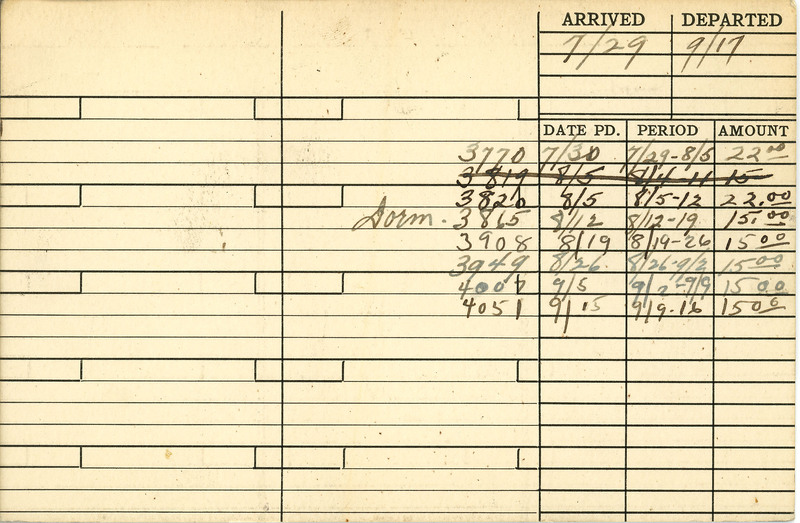 ARRIVED DEPARTED
7/29 9/17
DATE PD. PERIOD AMOUNT
3770 7/30 7/29-8/5 22.00
3819 8/5 8/4-11 15-
3820 8/5 8/5-12 22.00
Dorm. 3865 8/12 8/12-19 15.00
3908 8/19 8/19-26 15.00
3949 8/26 8/26-9/2 15.00
4007 9/5 9/2-9/9 15.00
4051 9/15 9/9-16 15.00